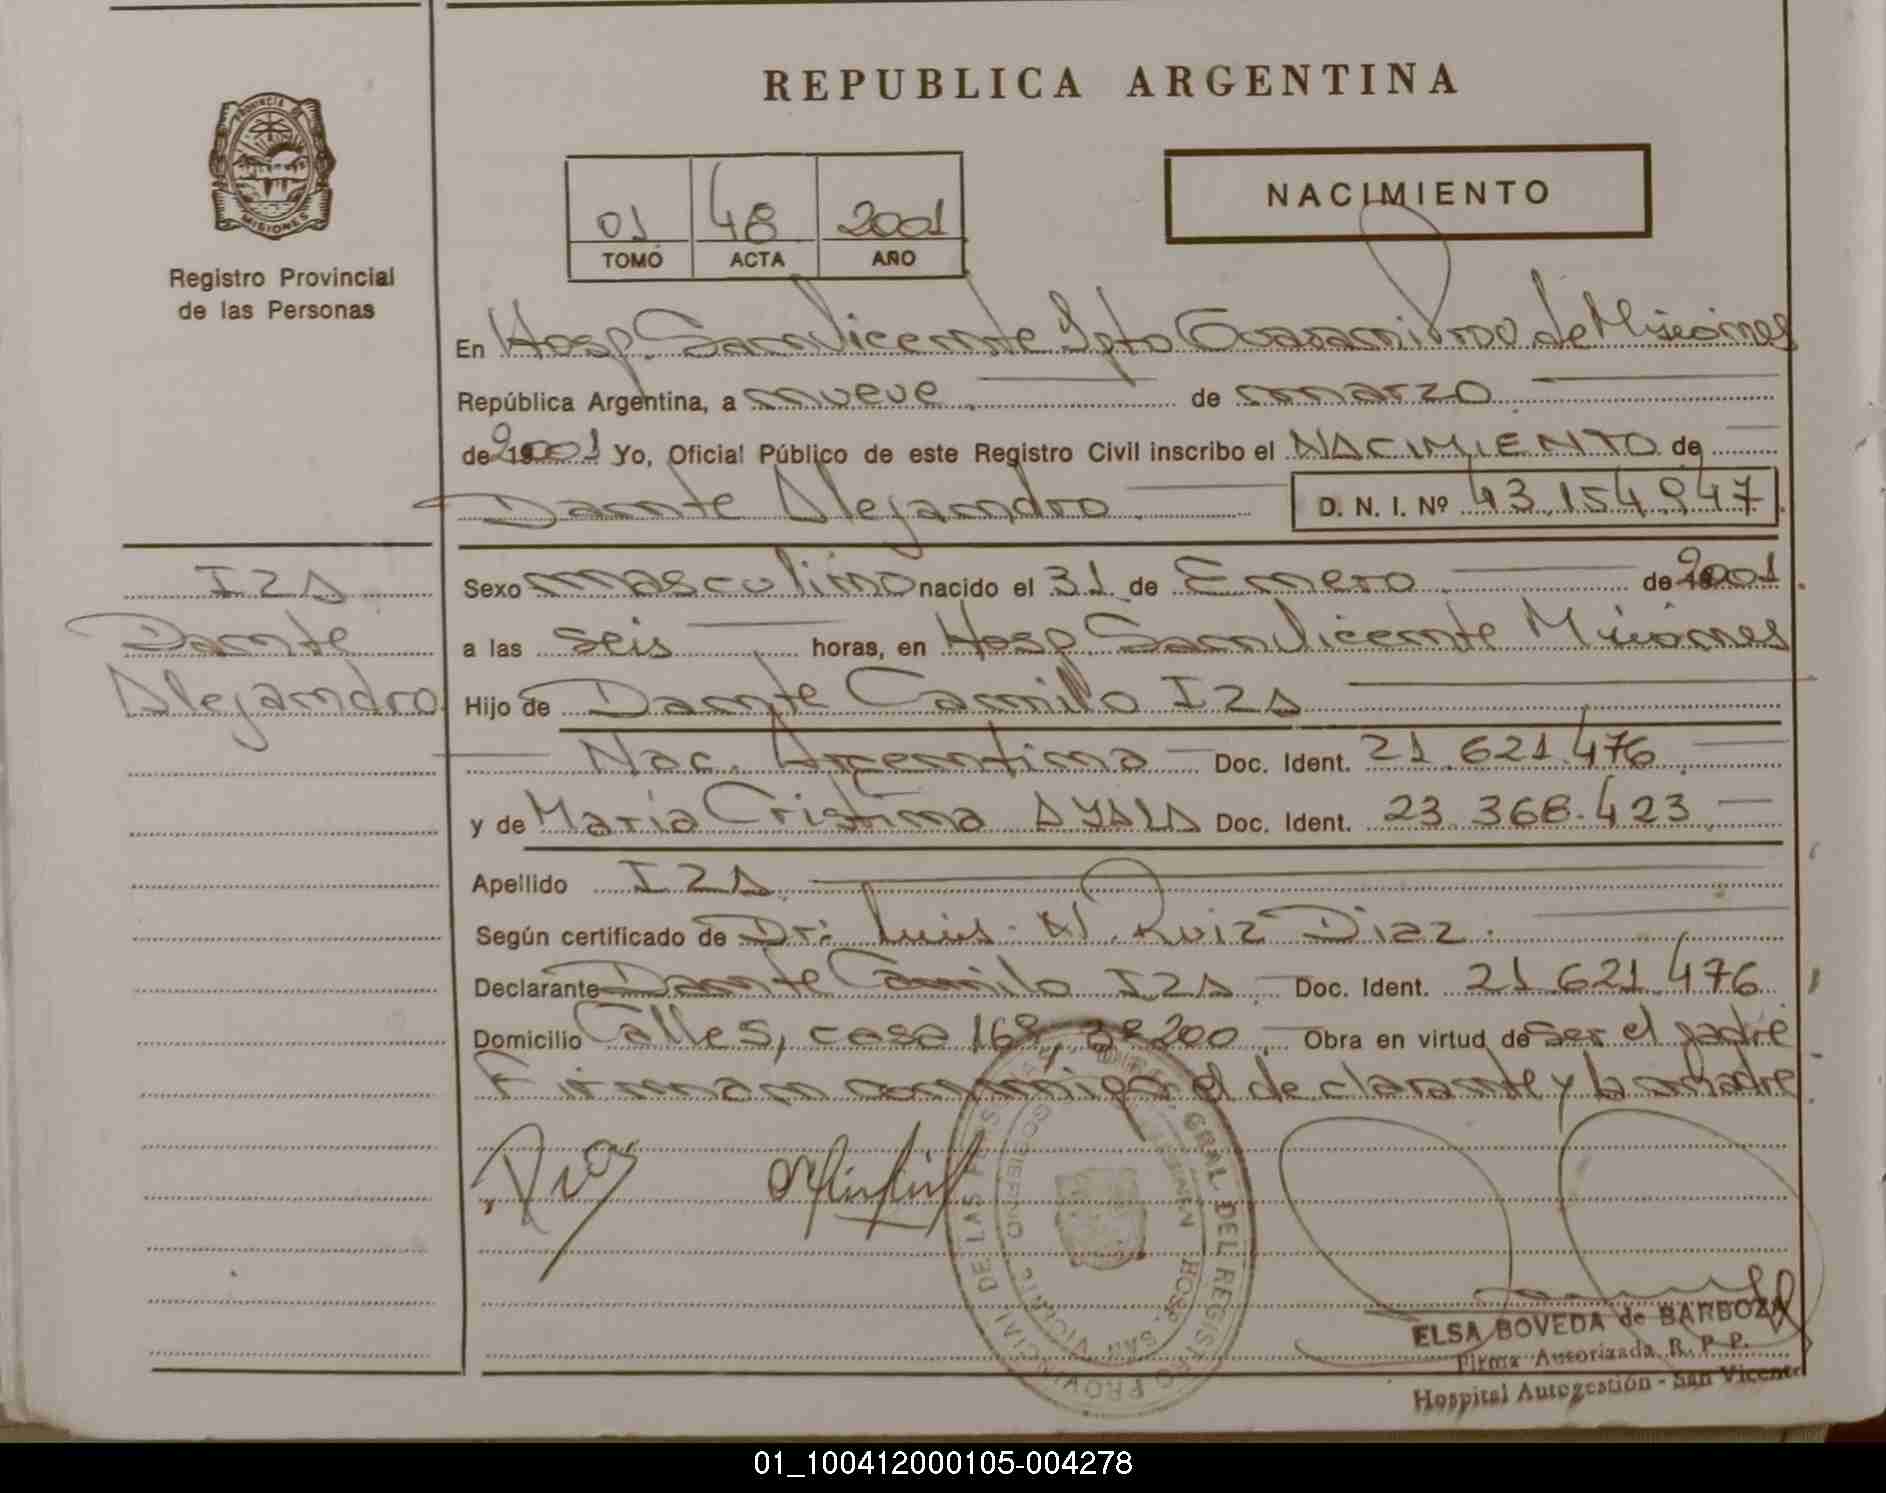 REPUBLICA ARGENTINA
PROVINCIA DE
MISIONES
Registro Provincial
de las Personas
01 48 2001
TOMO ACTA AÑO
NACIMIENTO
En Hosp. San Vicente Dpto Guaraní Prov de Misiones
República Argentina, a nueve de marzo
de 2001 Yo, Oficial Público de este Registro Civil inscribo el NACIMIENTO de
Dante Alejandro D. N. I. Nº 43.154.947
IZA
Dante
Alejandro
Sexo masculino nacido el 31 de Enero de 2001
a las seis horas, en Hosp. San Vicente Misiones
Hijo de Dante Camilo IZA
Nac. Argentina Doc. Ident. 21.621.476
y de María Cristina AYALA Doc. Ident. 23.368.423
Apellido IZA
Según certificado de Dr: Luis A. Ruiz Diaz.
Declarante Dante Camilo IZA Doc. Ident. 21.621.476
Domicilio Calle S, casa 168, Bº 200 Obra en virtud de ser el padre
Firman conmigo el declarante y la madre
GRAL DEL REGISTRO PROVINCIAL DE LAS PERSONAS
HOSP. SAN VICENTE
ELSA BOVEDA de BARBOZA
Firma Autorizada R. P. P.
Hospital Autogestión - San Vicente
01_100412000105-004278